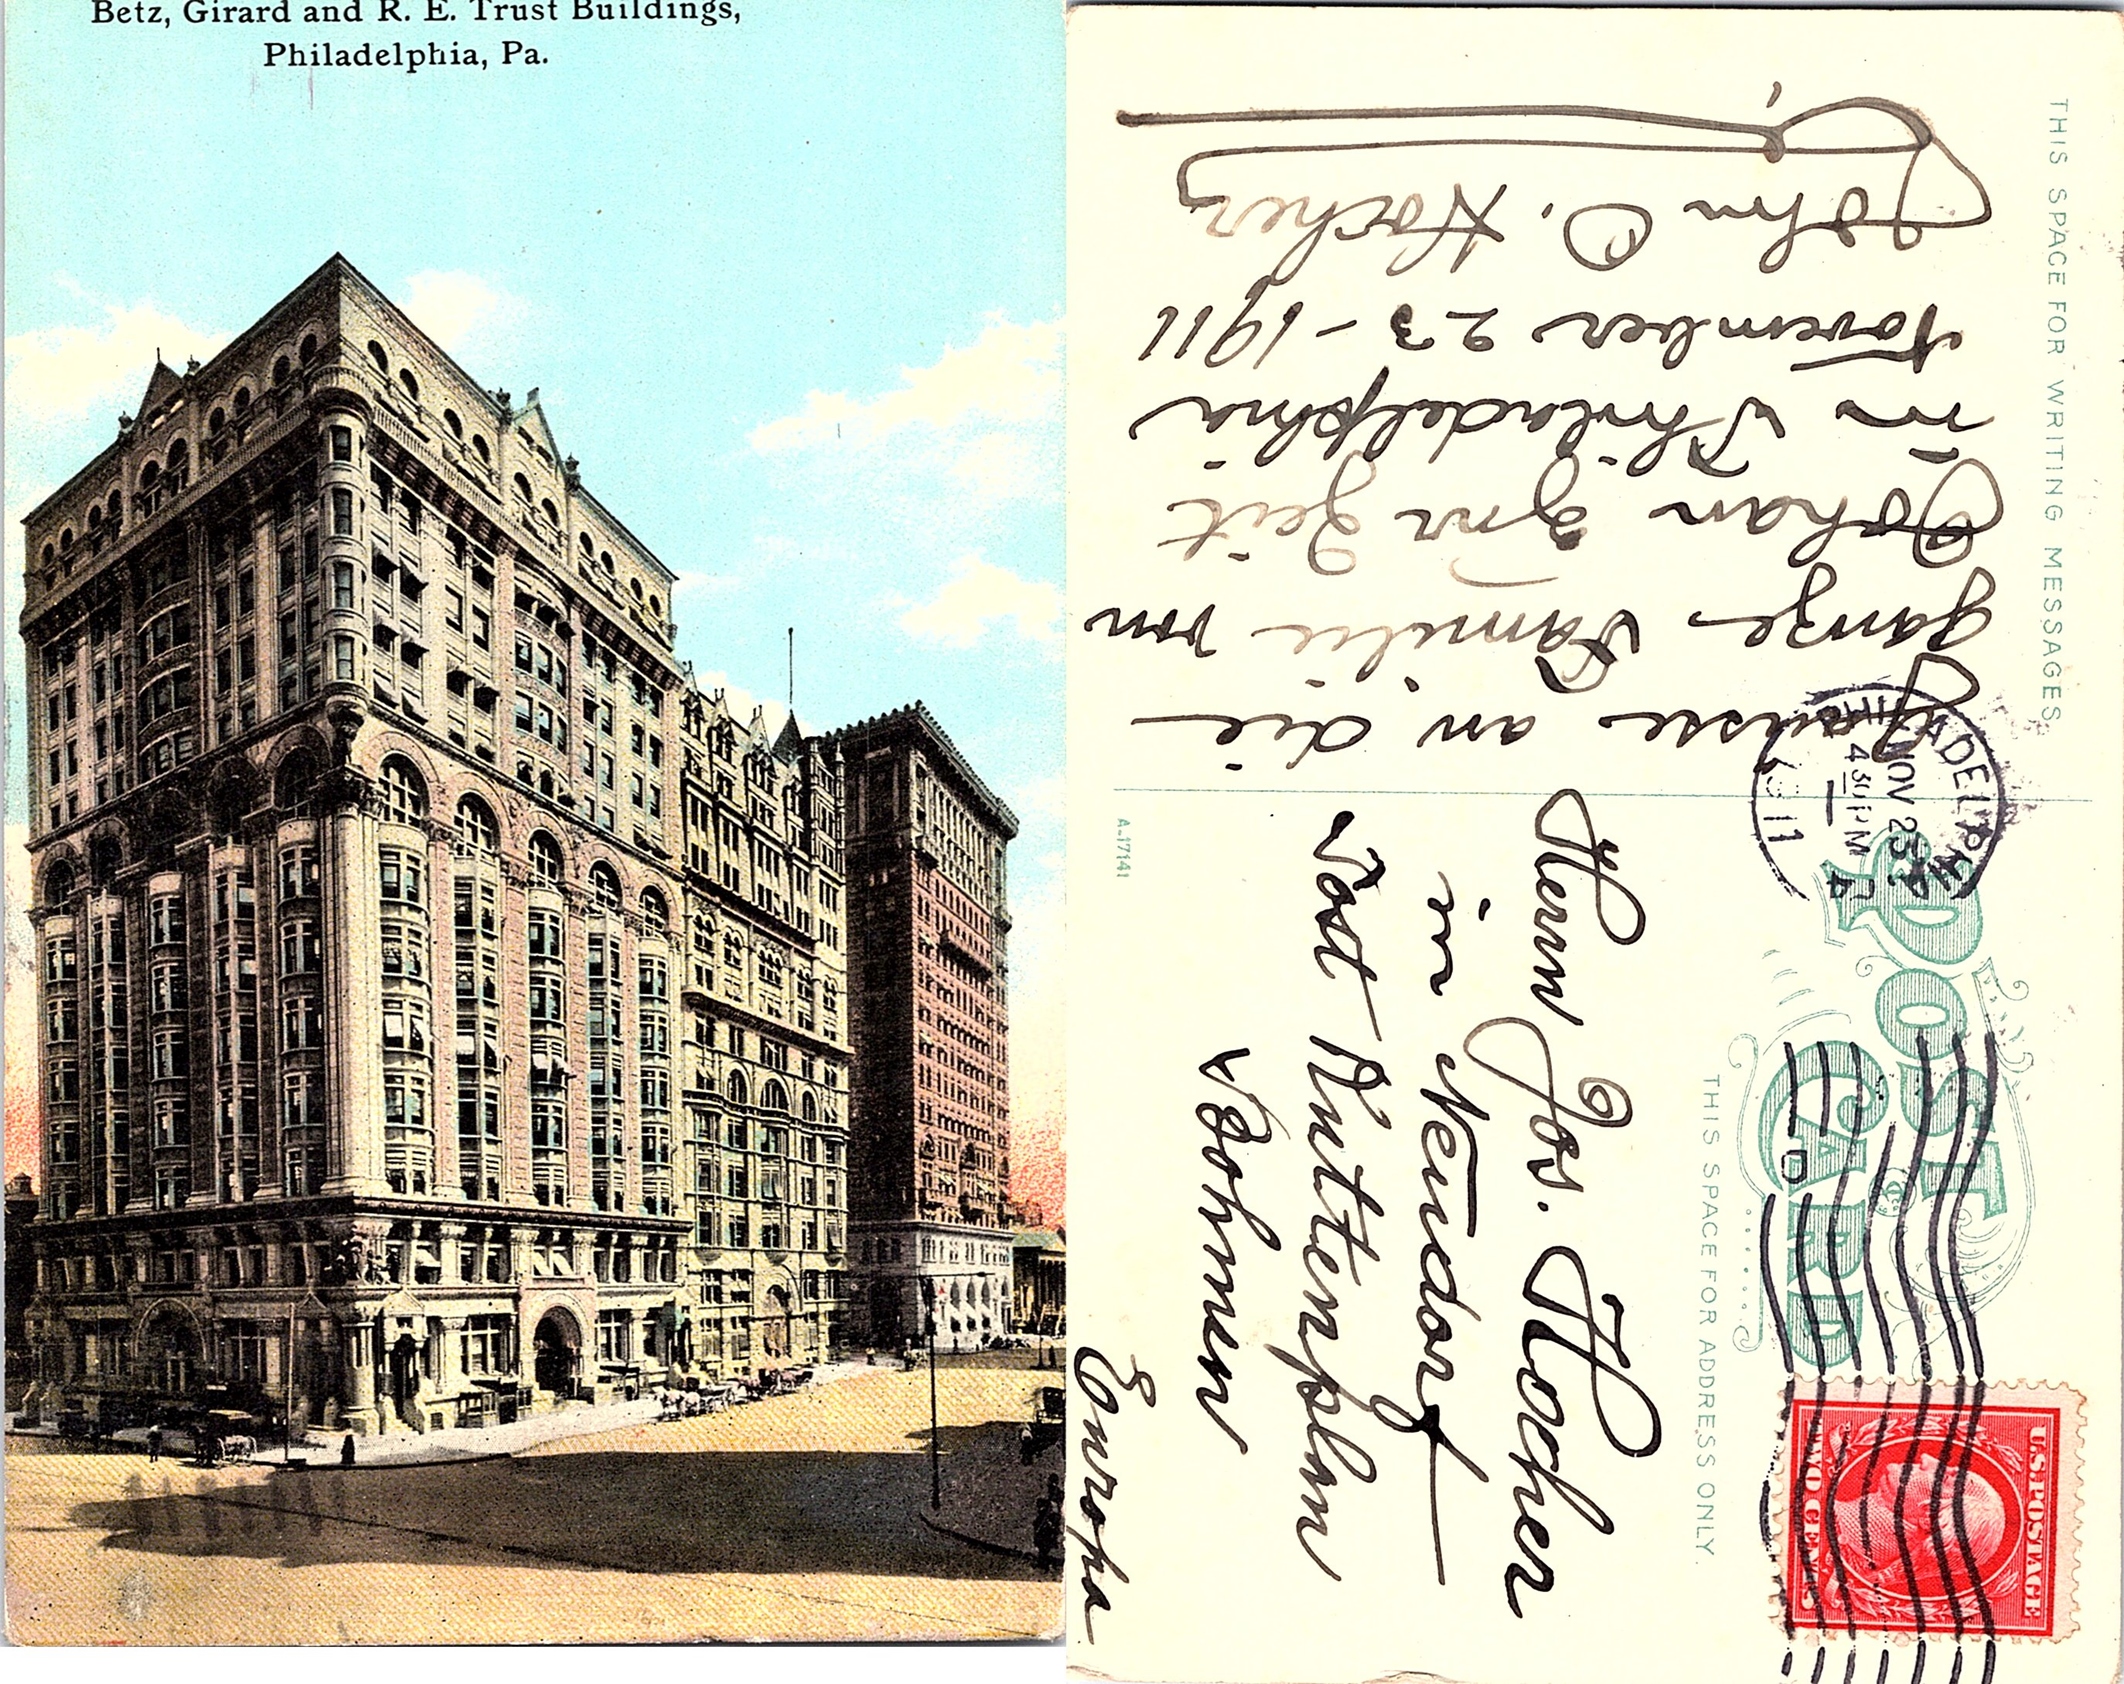 Betz, Girard and R. E. Trust Buildings,
Philadelphia, Pa.
THIS SPACE FOR WRITING MESSAGES
an die
ganze Familie von
Zeit
in Philadelphia
November 23-1911
John O. Hocher
A-17141
POST
CARD
THIS SPACE FOR ADDRESS ONLY.
NOV 23
4 30 PM
1911
D
U.S. POSTAGE
TWO CENTS
Herrn Jos. Hocher
in Neudorf
Post Kuttenplan
Böhmen
Europa